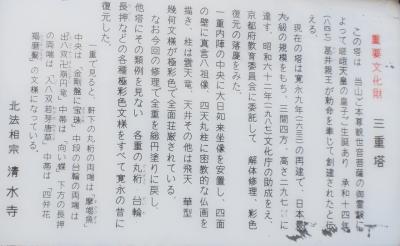 重要文化財 三重塔
この塔は 当山ご本尊観世音菩薩の御霊験に
よって 嵯峨天皇の皇子ご生誕あり 承和十四年
(八四七)葛井親王が勅命を奉じて 創建されたと伝
える。
現在の塔は寛永九年(一六三二)の再建で、日本最
大級の規模をもち、三間四方、高さ二九七に
達す。昭和六十二年(一九八七)文化庁の助成をえ、
京都府教育委員会に委託して 解体修理、彩色
復元の落慶をみた。
一重内陣の中央に大日如来坐像を安置し、四面
の壁に真言八祖像、四天丸柱に密教的な仏画を
描き、柱は雲天竜、天井その他は飛天 華型
幾何文様が極彩色で全面荘厳されている。
なお今回の修理で全重を総円塗りに戻し、
他塔にその類例を見ない 各重の丸桁 台輪
長押などの各種極彩色文様をすべて寛永の昔に
復元した。
一重で見ると、軒下の丸桁の両端は、「摩竭魚」
中央は、「金剛盤に宝珠」 中段の台輪の両端は
「出八双卍崩円竜」 中帯は、「向い蝶」 下方の長押
の両端は、「入八双唐草」 中帯は「四弁花
羯磨繋」の文様になっている。
北法相宗 清水寺